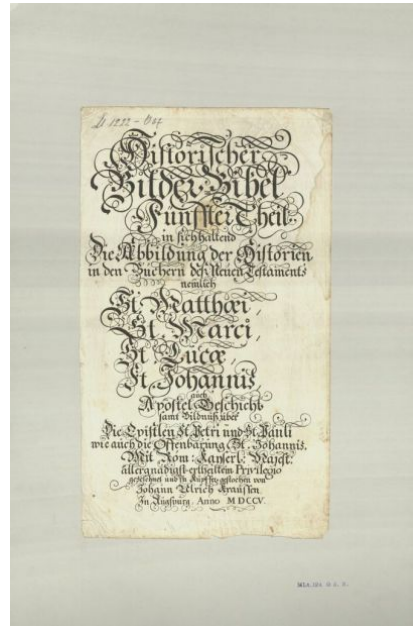 Historischer
Bilder Bibel
Fünffter Theil,
in sich haltend
Die Abbildung der Historien
in den Büchern deß Neuen Testaments
nemlich
St Matthæi,
St Marci,
St Lucæ,
St Johannis,
auch
Apostel Geschicht
samt Bildnüß über
Die Epistlen St. Petri und St. Pauli
wie auch die Offenbarung St. Johannis.
Mit Röm: Kayserl: Majest:
allergnädigst ertheilten Privilegio
gezeichnet und in Kupffer gestochen von
Johann Ulrich Kraussen.
In Augspurg. Anno MDCCV.